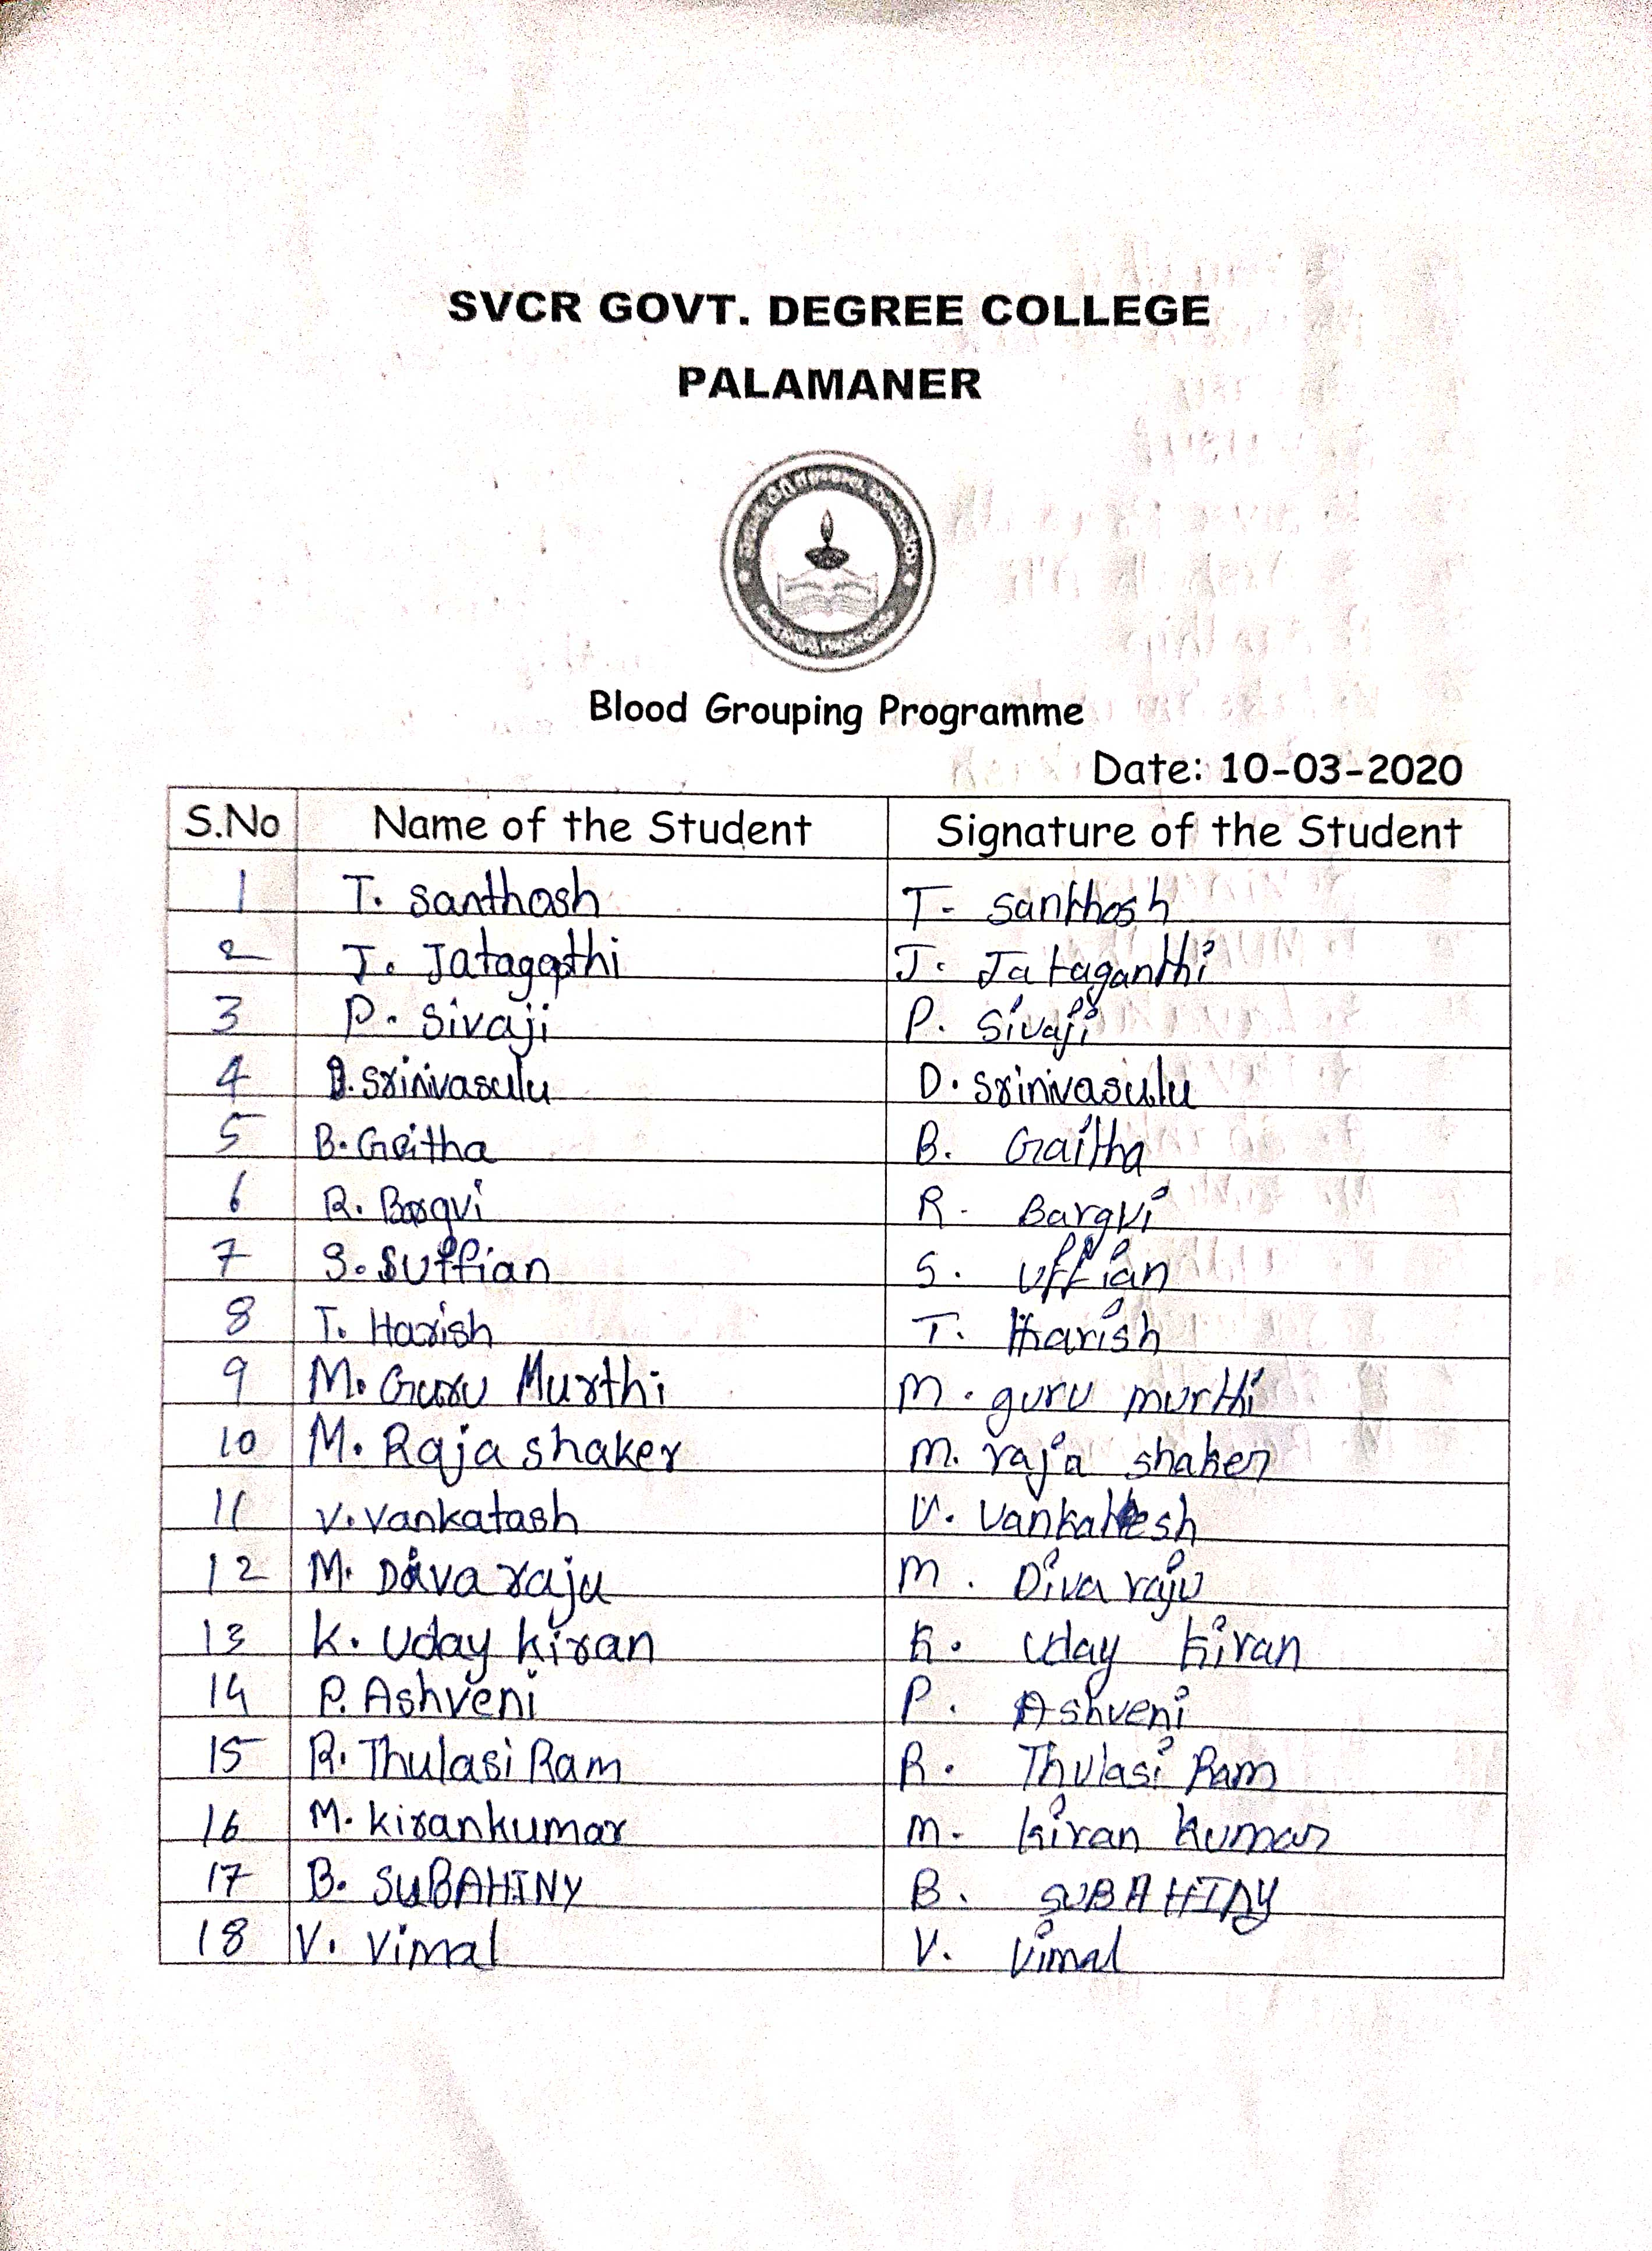 SVCR GOVT. DEGREE COLLEGE
PALAMANER
Blood Grouping Programme
Date: 10-03-2020
S.No Name of the Student Signature of the Student
1 T. Santhosh T. Santhosh
2 J. Jatagapthi J. Jataganthi
3 P. Sivaji P. Sivaji
4 D. Srinivasulu D. Srinivasulu
5 B. Geitha B. Gaitha
6 R. Bargvi R. Bargvi
7 S. Suffian S. uffian
8 T. Harish T. Harish
9 M. Guru Murthi M. guru murthi
10 M. Raja shaker M. raja shaker
11 V. Vankatash V. Vankatesh
12 M. Diva raju M. Diva raju
13 K. Uday kiran K. Uday kiran
14 P. Ashveni P. Ashveni
15 R. Thulasi Ram R. Thulasi Ram
16 M. kirankumar M. kiran kumar
17 B. SUBAHINY B. SUBAHINY
18 V. Vimal V. Vimal